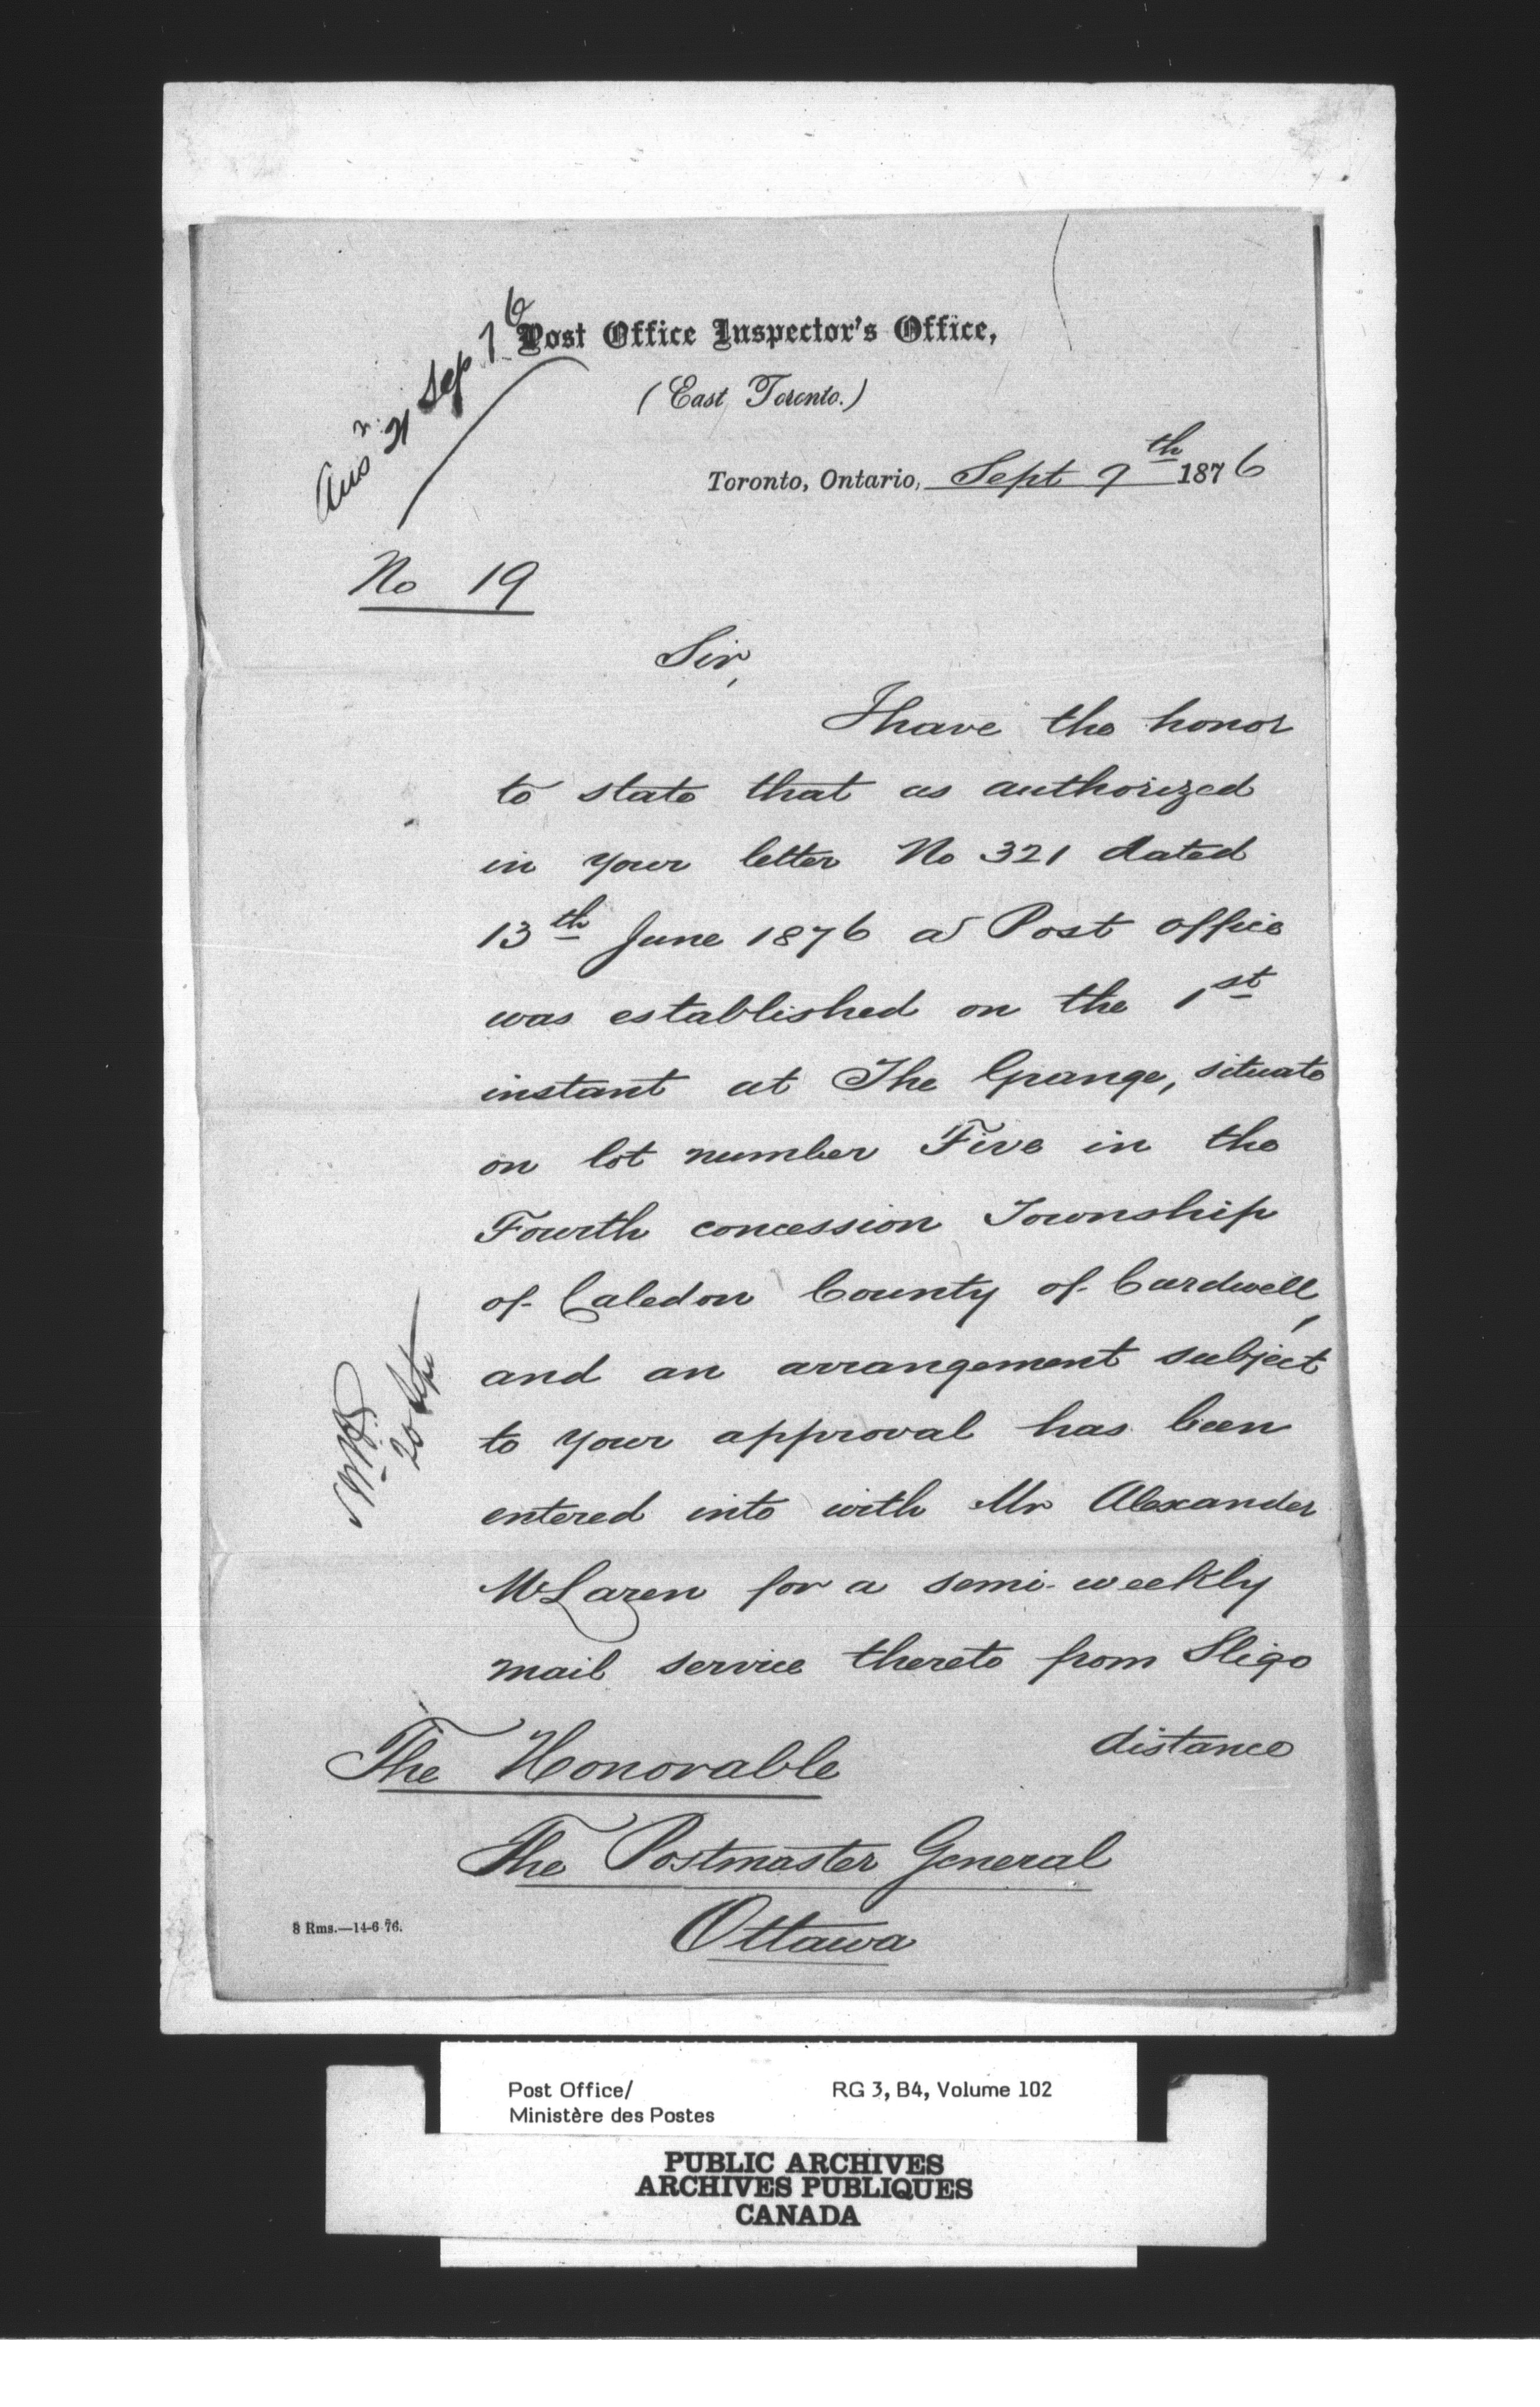 Ansr. 21 Sep 76
Post Office Inspector's Office,
(East Toronto.)
Toronto, Ontario, Sept 9th 1876
No 19
Sir,
I have the honor
to state that as authorized
in your letter No 321 dated
13th June 1876 a Post office
was established on the 1st
instant at The Grange, situate
on lot number Five in the
Fourth concession Township
of Caledon County of Cardwell,
and an arrangement subject
to your approval has been
entered into with Mr Alexander
McLaren for a semi-weekly
mail service thereto from Sligo
distance
20 Sept
The Honorable
The Postmaster General
Ottawa
8 Rms.—14-6-76.
Post Office/
Ministère des Postes
RG 3, B4, Volume 102
PUBLIC ARCHIVES
ARCHIVES PUBLIQUES
CANADA